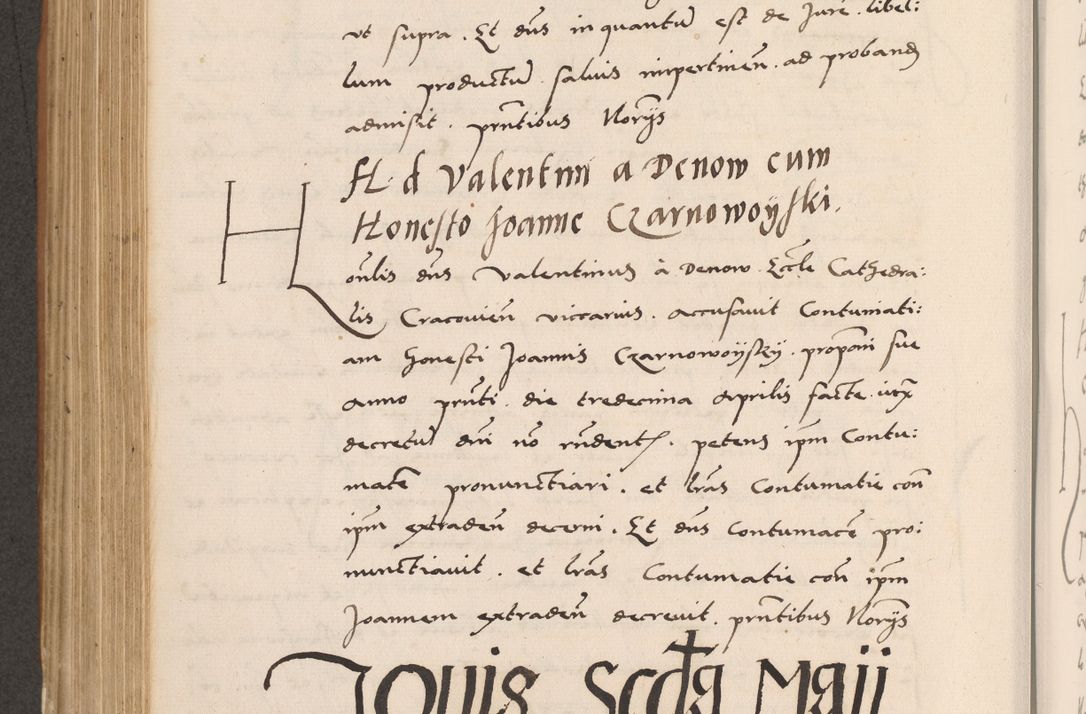 ut supra. Et dn̄s in quantū est de Jure. libel:
lum productū salvis impertinen̄. ad proband
admisit. prn̄tibus Norijs
H. d Valentini a Denow cum
Honesto Joanne Czarnowoyski.
Honlis dn̄s Valentinus à Denow. Eccl̄e Cathedra:
lis Cracovien̄ viccarius. accusavit Contumati:
am honesti Joannis Czarnowoyszky. propōni sue
anno prn̄ti. die tredecima Aprilis facte. iux
decretū dn̄i nō rn̄dent. petens ipm Contu:
macē pronunctiari. et lr̄as Contumatie con̄
ipm extraden̄ decerni. Et dn̄s Contumacē pro:
nunctiavit. et lr̄as Contumatie con̄ ipm
Joannem extraden̄ decrevit. prn̄tibus Norijs
Jovis Scda Maij